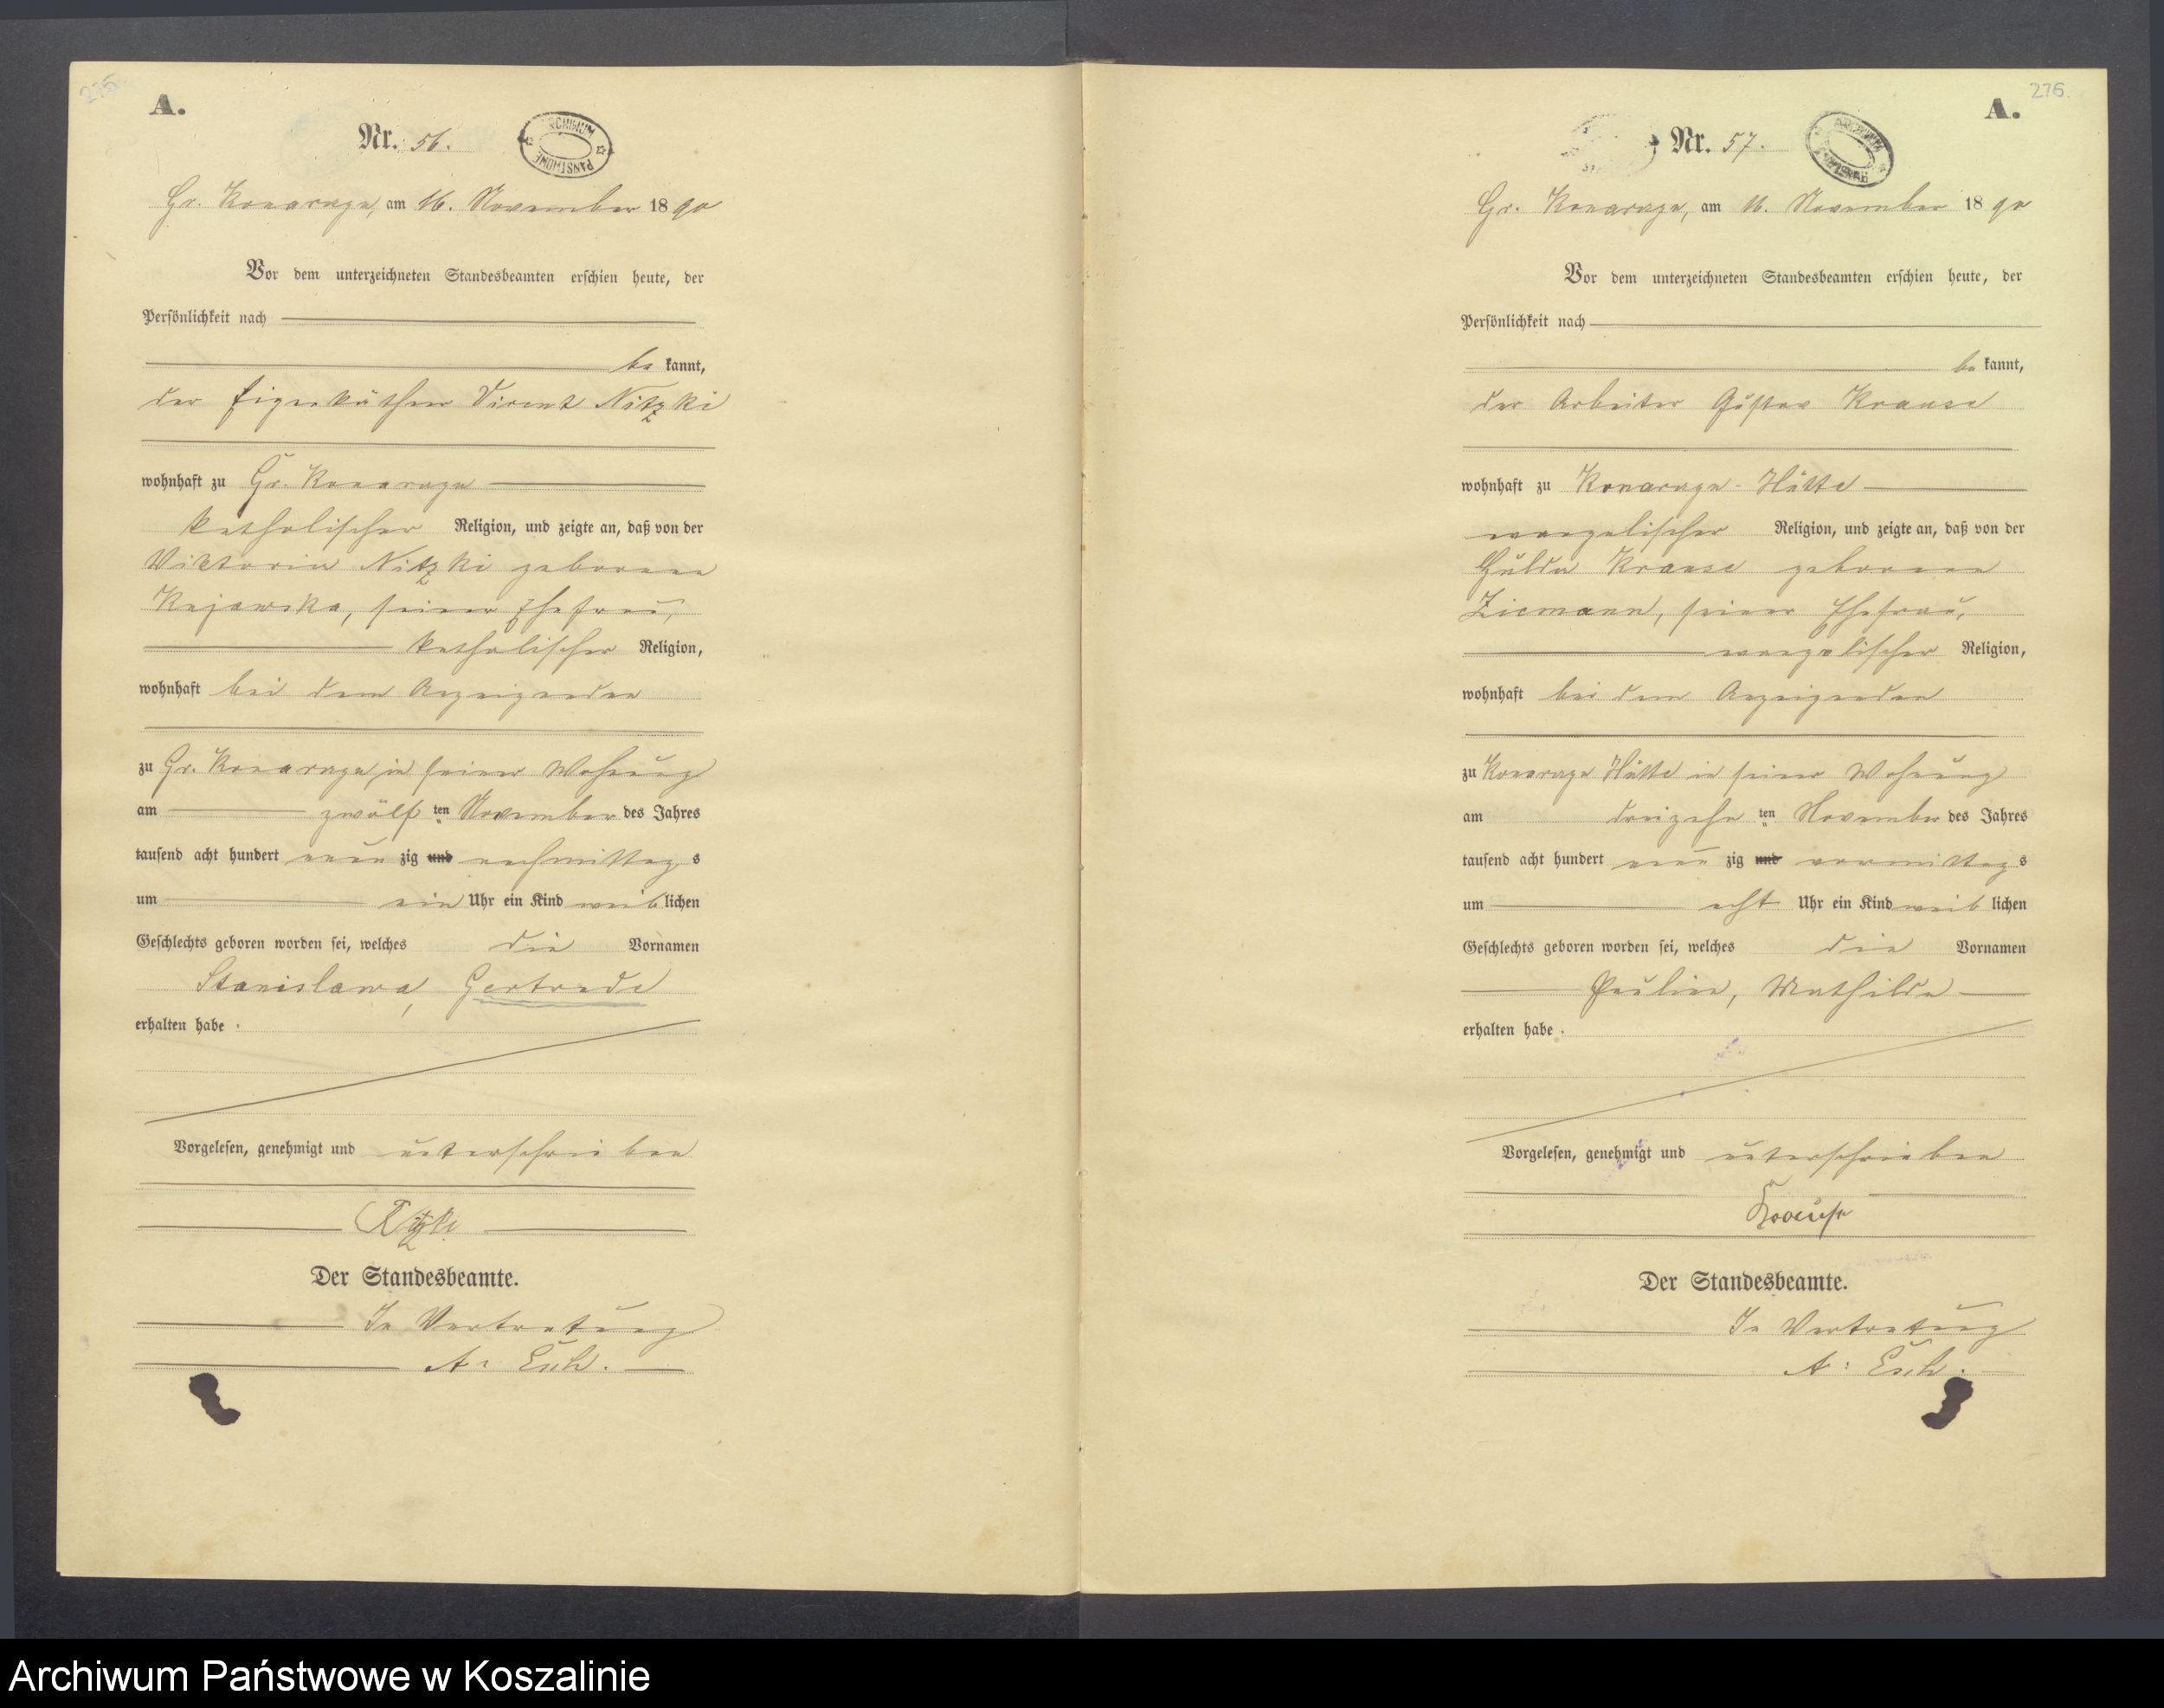 A.
Nr. 56.
ARCHIWUM PAŃSTWOWE
Gr. Konarzyn, am 16. November 1890
Vor dem unterzeichneten Standesbeamten erschien heute, der
Persönlichkeit nach
be kannt,
der Eigenkäthner Vincent Nitzki
wohnhaft zu Gr. Konarzyn
katholischer Religion, und zeigte an, daß von der
Viktoria Nitzki geborenen
Kujawska, seiner Ehefrau,
katholischer Religion,
wohnhaft bei dem Anzeigenden
zu Gr. Konarzyn, in seiner Wohnung
am zwölf ten November des Jahres
tausend acht hundert neun zig und nachmittag s
um ein Uhr ein Kind weib lichen
Geschlechts geboren worden sei, welches die Vornamen
Stanislawa, Gertrude
erhalten habe.
Vorgelesen, genehmigt und unterschrieben
Nitzki
Der Standesbeamte.
In Vertretung
276.
A.
Nr. 57.
Gr. Konarzyn, am 16. November 1890
Vor dem unterzeichneten Standesbeamten erschien heute, der
Persönlichkeit nach
be kannt,
der Arbeiter Gustav Krause
wohnhaft zu Konarzyn-Hütte
evangelischer Religion, und zeigte an, daß von der
Hulda Krause geborenen
Ziemann, seiner Ehefrau,
evangelischer Religion,
wohnhaft bei dem Anzeigenden
zu Konarzyn Hütte in seiner Wohnung
am dreizehn ten November des Jahres
tausend acht hundert neun zig und vormittag s
um acht Uhr ein Kind weib lichen
Geschlechts geboren worden sei, welches die Vornamen
Pauline, Mathilde
erhalten habe.
Vorgelesen, genehmigt und unterschrieben
Krause
Der Standesbeamte.
In Vertretung
Archiwum Państwowe w Koszalinie